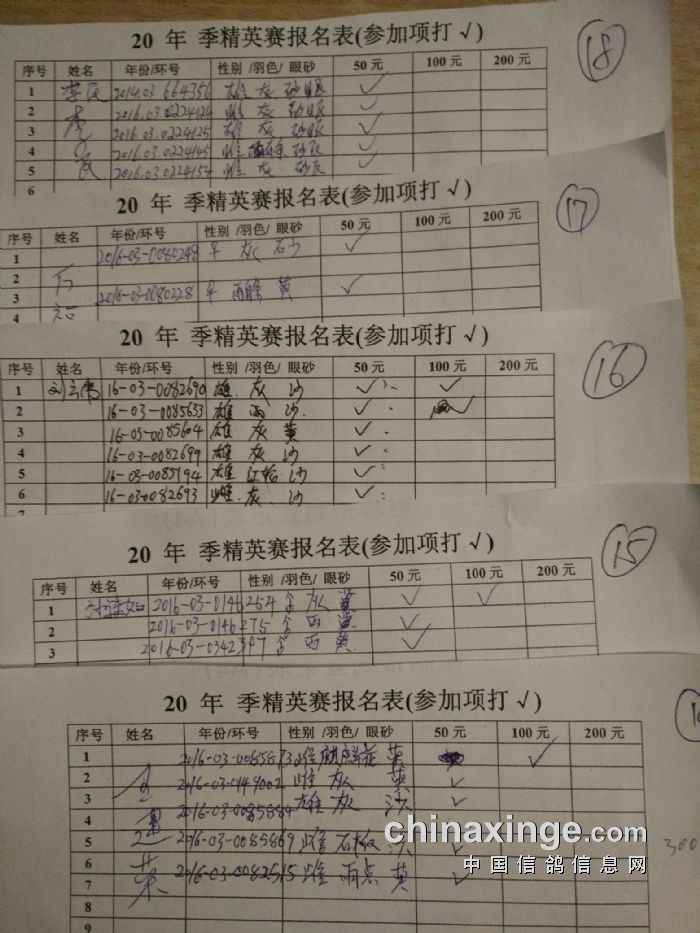 20 年 季精英赛报名表(参加项打 √)
18
序号 姓名 年份/环号 性别 /羽色/ 眼砂 50 元 100 元 200 元
1 2014.03 664356 雄 灰 砂眼 √
2 2016.03.0224124 雌 灰 砂眼 √
3 2016.03.0224125 雄 灰 砂眼 √
4 2016.03.0224145 雌 砂眼 √
5 2016.03.0224154 雌 灰 砂眼 √
6
20 年 季精英赛报名表(参加项打 √)
17
序号 姓名 年份/环号 性别 /羽色/ 眼砂 50 元 100 元 200 元
1 2016-03-0080248 灰 石沙 √
2
3 2016-03-0080228 黄 √
4
20 年 季精英赛报名表(参加项打 √)
16
序号 姓名 年份/环号 性别 /羽色/ 眼砂 50 元 100 元 200 元
1 16-03-0082690 雄 灰 沙 √ √
2 16-03-0085633 雄 雨 沙 √ √
3 16-03-0085604 雄 灰 黄 √
4 16-03-0082699 雄 灰 沙 √
5 16-03-0085194 雄 红轮 沙 √
6 16-03-0082693 雌 灰 沙 √
20 年 季精英赛报名表(参加项打 √)
15
序号 姓名 年份/环号 性别 /羽色/ 眼砂 50 元 100 元 200 元
1 2016-03-0146254 灰 黄 √ √
2 2016-03-0146275 雨 黄 √
3 2016-03-0342347 雨 黄 √
20 年 季精英赛报名表(参加项打 √)
序号 姓名 年份/环号 性别 /羽色/ 眼砂 50 元 100 元 200 元
1 2016-03-0085873 雌 黄 √
2 2016-03-0149002 雌 灰 黄 √
3 2016-03-0085884 雄 灰 沙 √
4
5 2016-03-0085869 雌 石板 沙 √
6 2016-03-0082515 雌 雨点 黄 √
7
8
9
300
chinaxinge.com
中国信鸽信息网